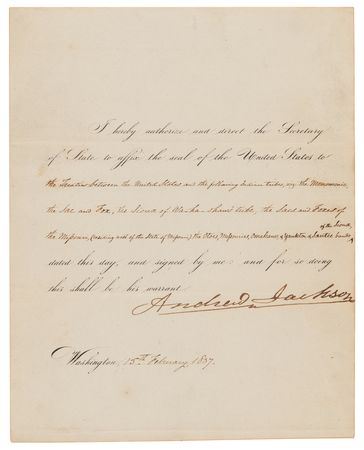 I hereby authorize and direct the Secretary
of State to affix the seal of the United States to
the Treaties between the United States and the following Indian tribes, viz: the Menomonie,
the Sac and Fox, the Sioux of Wa-ha-shaw's tribe, the Sacs and Foxes of
of the Sioux,
the Missouri, (residing west of the State of Missouri) the Otoes, Missouries, Omahaws, & Yankton & Santee bands
dated this day, and signed by me: and for so doing
this shall be his warrant.
Andrew Jackson
Washington, 15th February, 1837.